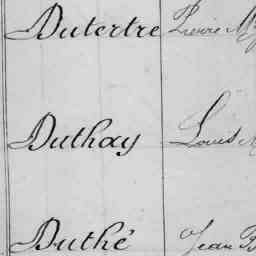 Dutertre Pierre M
Duthay Louis
Duthé Jean B